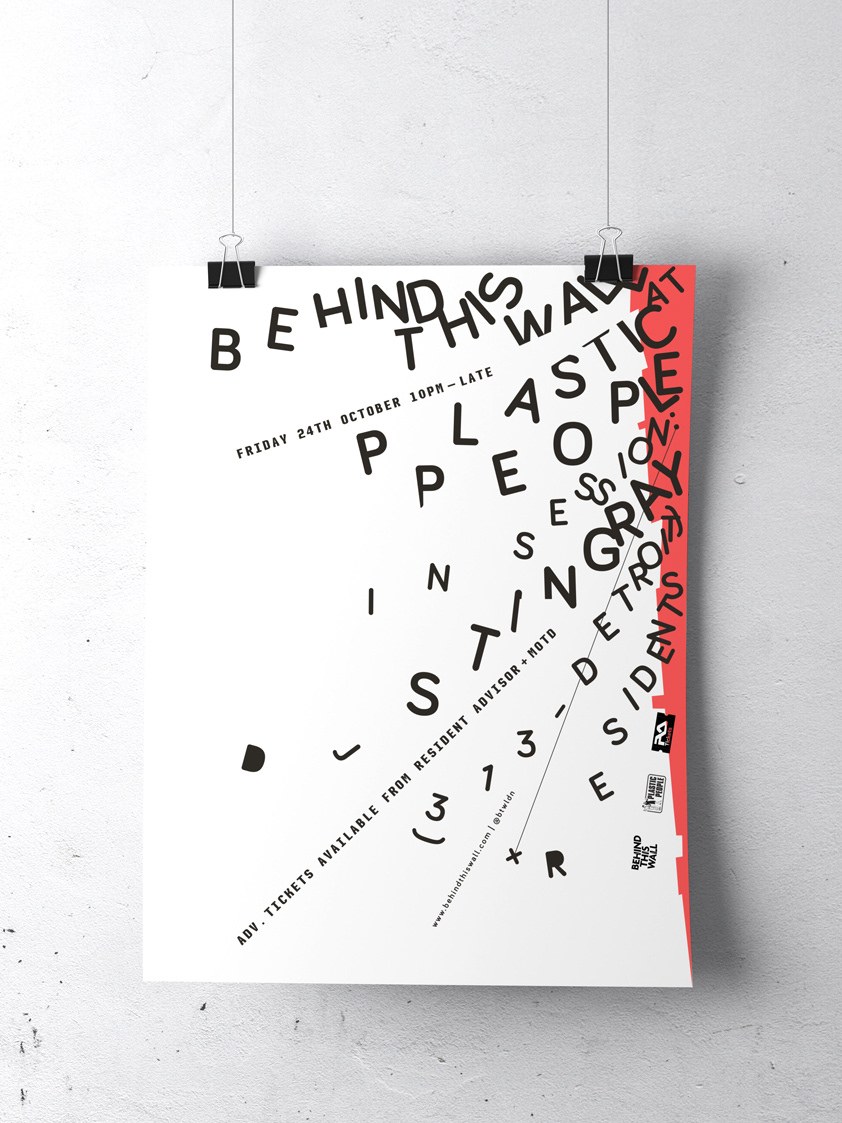 BEHIND THIS WALL AT
FRIDAY 24TH OCTOBER 10PM—LATE
PLASTIC
PEOPLE
IN SESSION:
DJ STINGRAY
(313 - DETROIT)
+ RESIDENTS
ADV. TICKETS AVAILABLE FROM RESIDENT ADVISOR + MOTD
www.behindthiswall.com | @btwldn
RA
PLASTIC
PEOPLE
BEHIND
THIS
WALL